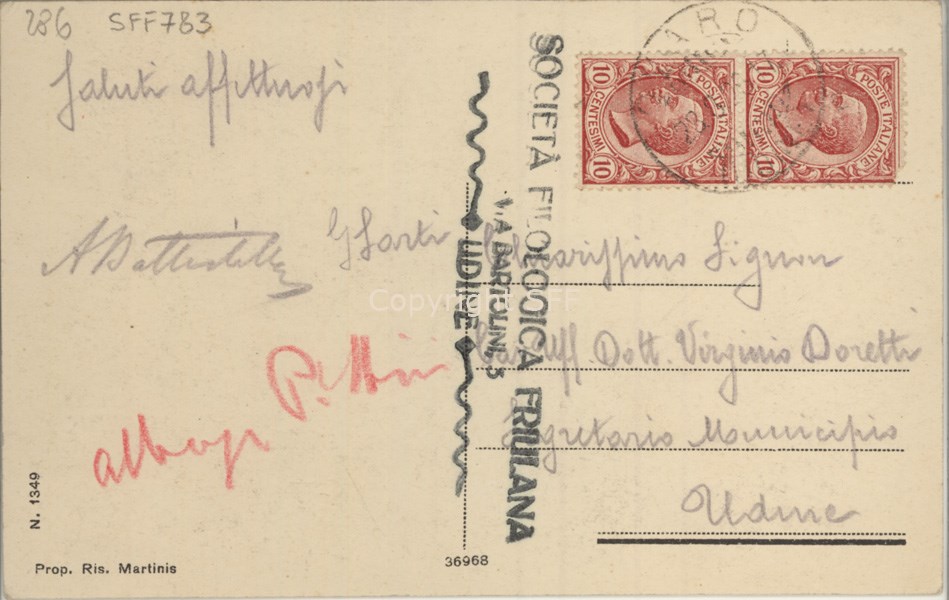 286 SFF783
Saluti affettuosi
A Battistella
G Sarti
albergo
Chiarissimo Signor
Cav Uff Dott. Virginio Doretti
Segretario Municipio
Udine
10 CENTESIMI 10 POSTE ITALIANE
10 CENTESIMI 10 POSTE ITALIANE
ARO
SOCIETÀ FILOLOGICA FRIULANA
VIA BARTOLINI, 3
UDINE
Copyright SFF
N. 1349
Prop. Ris. Martinis
36968